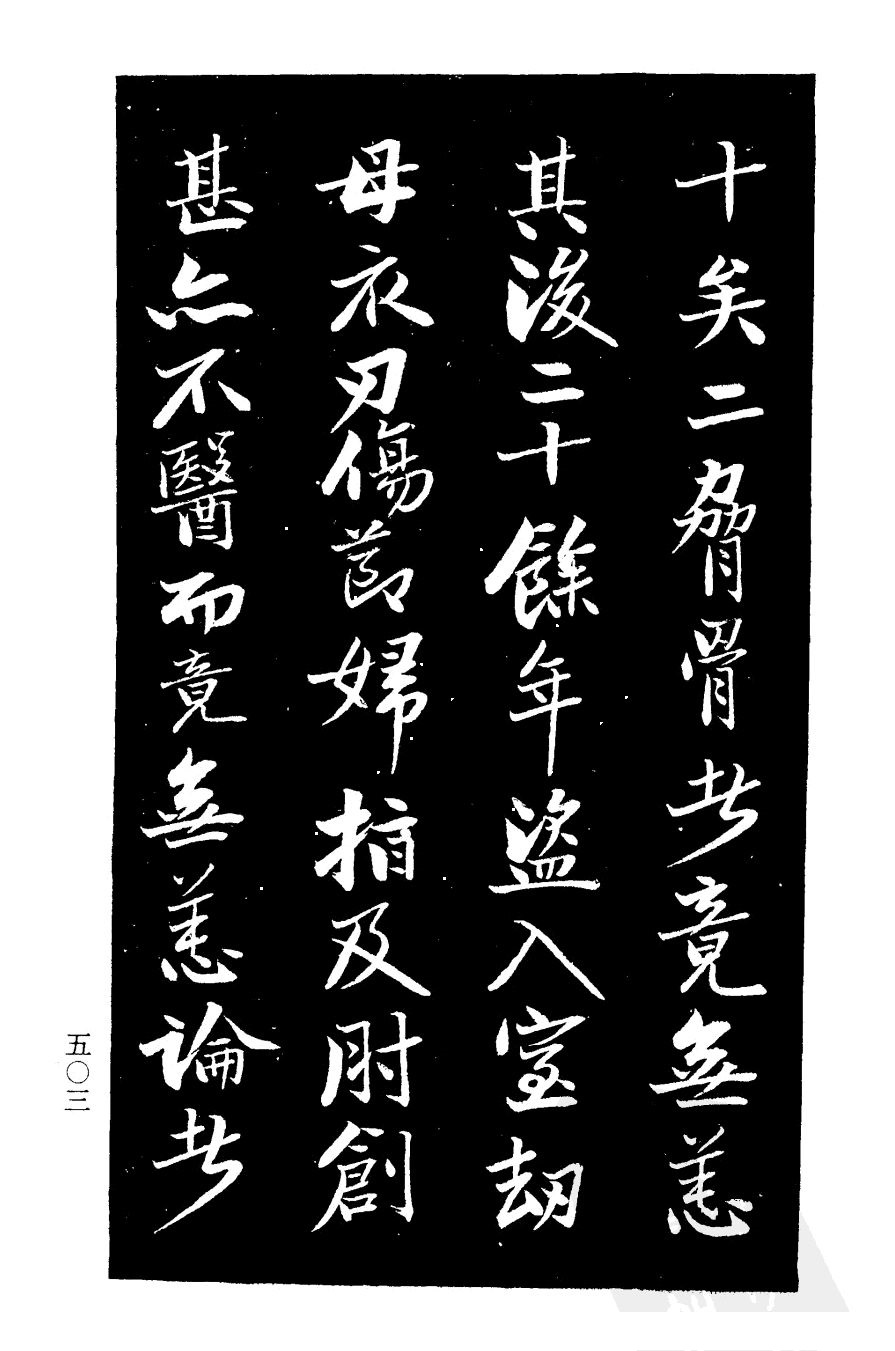 十矣二脅骨出竟無恙
其後二十餘年盜入室劫
母衣刃傷節婦指及肘創
甚亦不醫而竟無恙論者
五〇三